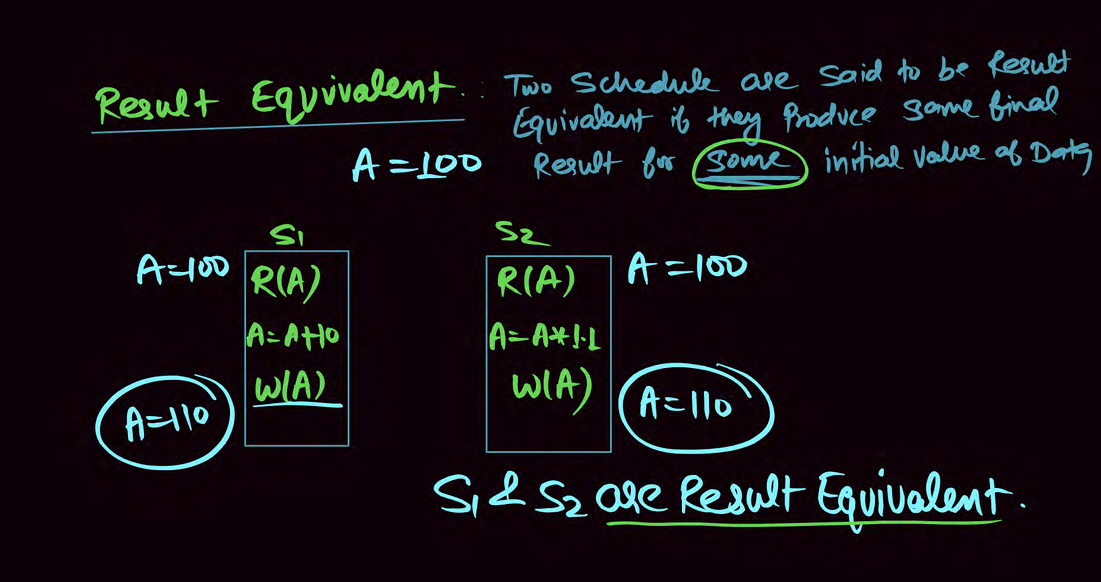 Result Equivalent : Two Schedule are said to be Result
Equivalent if they Produce same final
Result for some initial value of Data
A = 100
S1
S2
A=100 R(A)
R(A) A = 100
A=A+10
A=A*1.1
W(A)
W(A)
A=110
A=110
S1 & S2 are Result Equivalent.